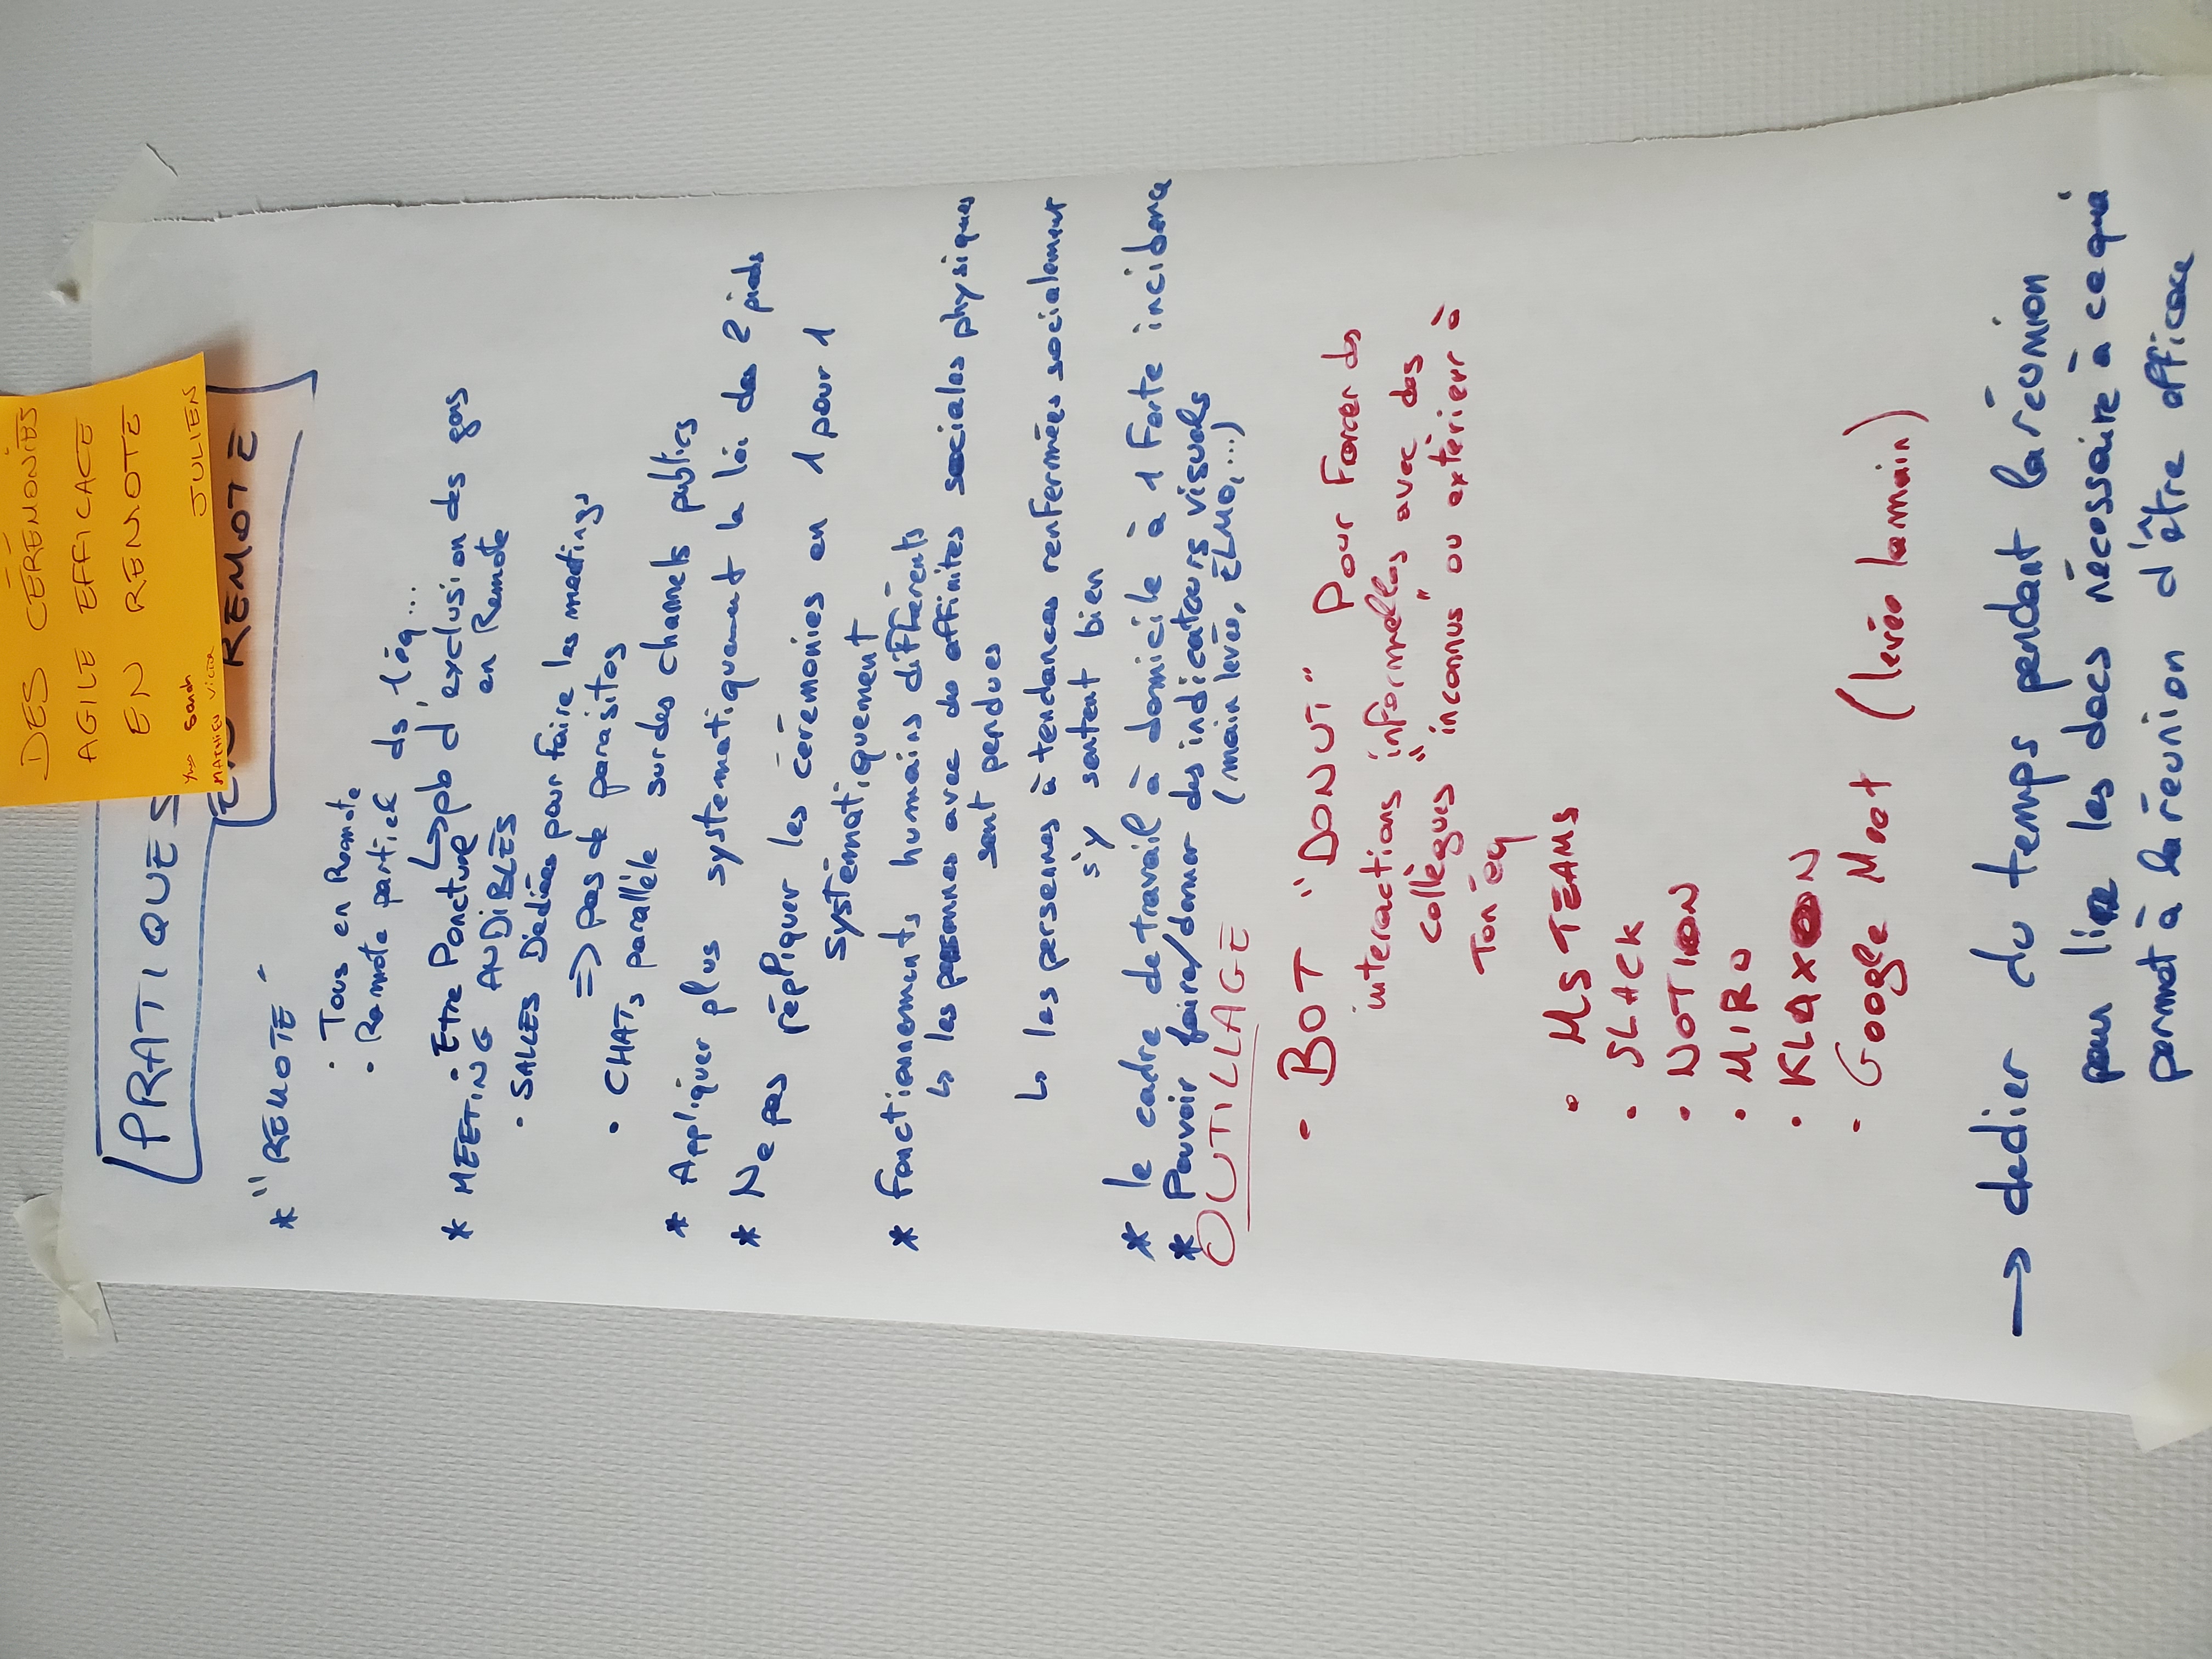 DES CÉRÉMONIES
AGILE EFFICACE
EN REMOTE
Yves Sarah
MATHIEU VICTOR
JULIEN
PRATIQUES
EN REMOTE
* "REMOTE"
· Tous en Remote
· Remote partiel ds l'éq...
↳ pb d'exclusion des gens
en Remote
· Etre Ponctuel
* MEETING AUDIBLES
· SALLES Dédiées pour faire les meetings
=> pas de parasites
· CHATs parallèle sur des channels publics
* Appliquer plus systematiquement la loi des 2 pieds
* Ne pas répliquer les cérémonies en 1 pour 1
systématiquement
* Fonctionnements humains différents
↳ les personnes avec des affinités sociales physiques
sont perdues
↳ les personnes à tendances renfermées socialement
s'y sentent bien
* le cadre de travail à domicile à 1 Forte incidence
* Pouvoir faire/donner des indicateurs visuels
(main levée, ELMO, ...)
OUTILLAGE
· BOT "DONUT" Pour Forcer des
interactions informelles avec des
collègues "inconnus" ou extérieur à
Ton éq
· MS TEAMS
· SLACK
· NOTION
· MIRO
· KLAXON
· Google Meet (levée la main)
→ dedier du temps pendant la réunion
pour lire les docs nécessaire à ce qui
permet à la réunion d'être efficace